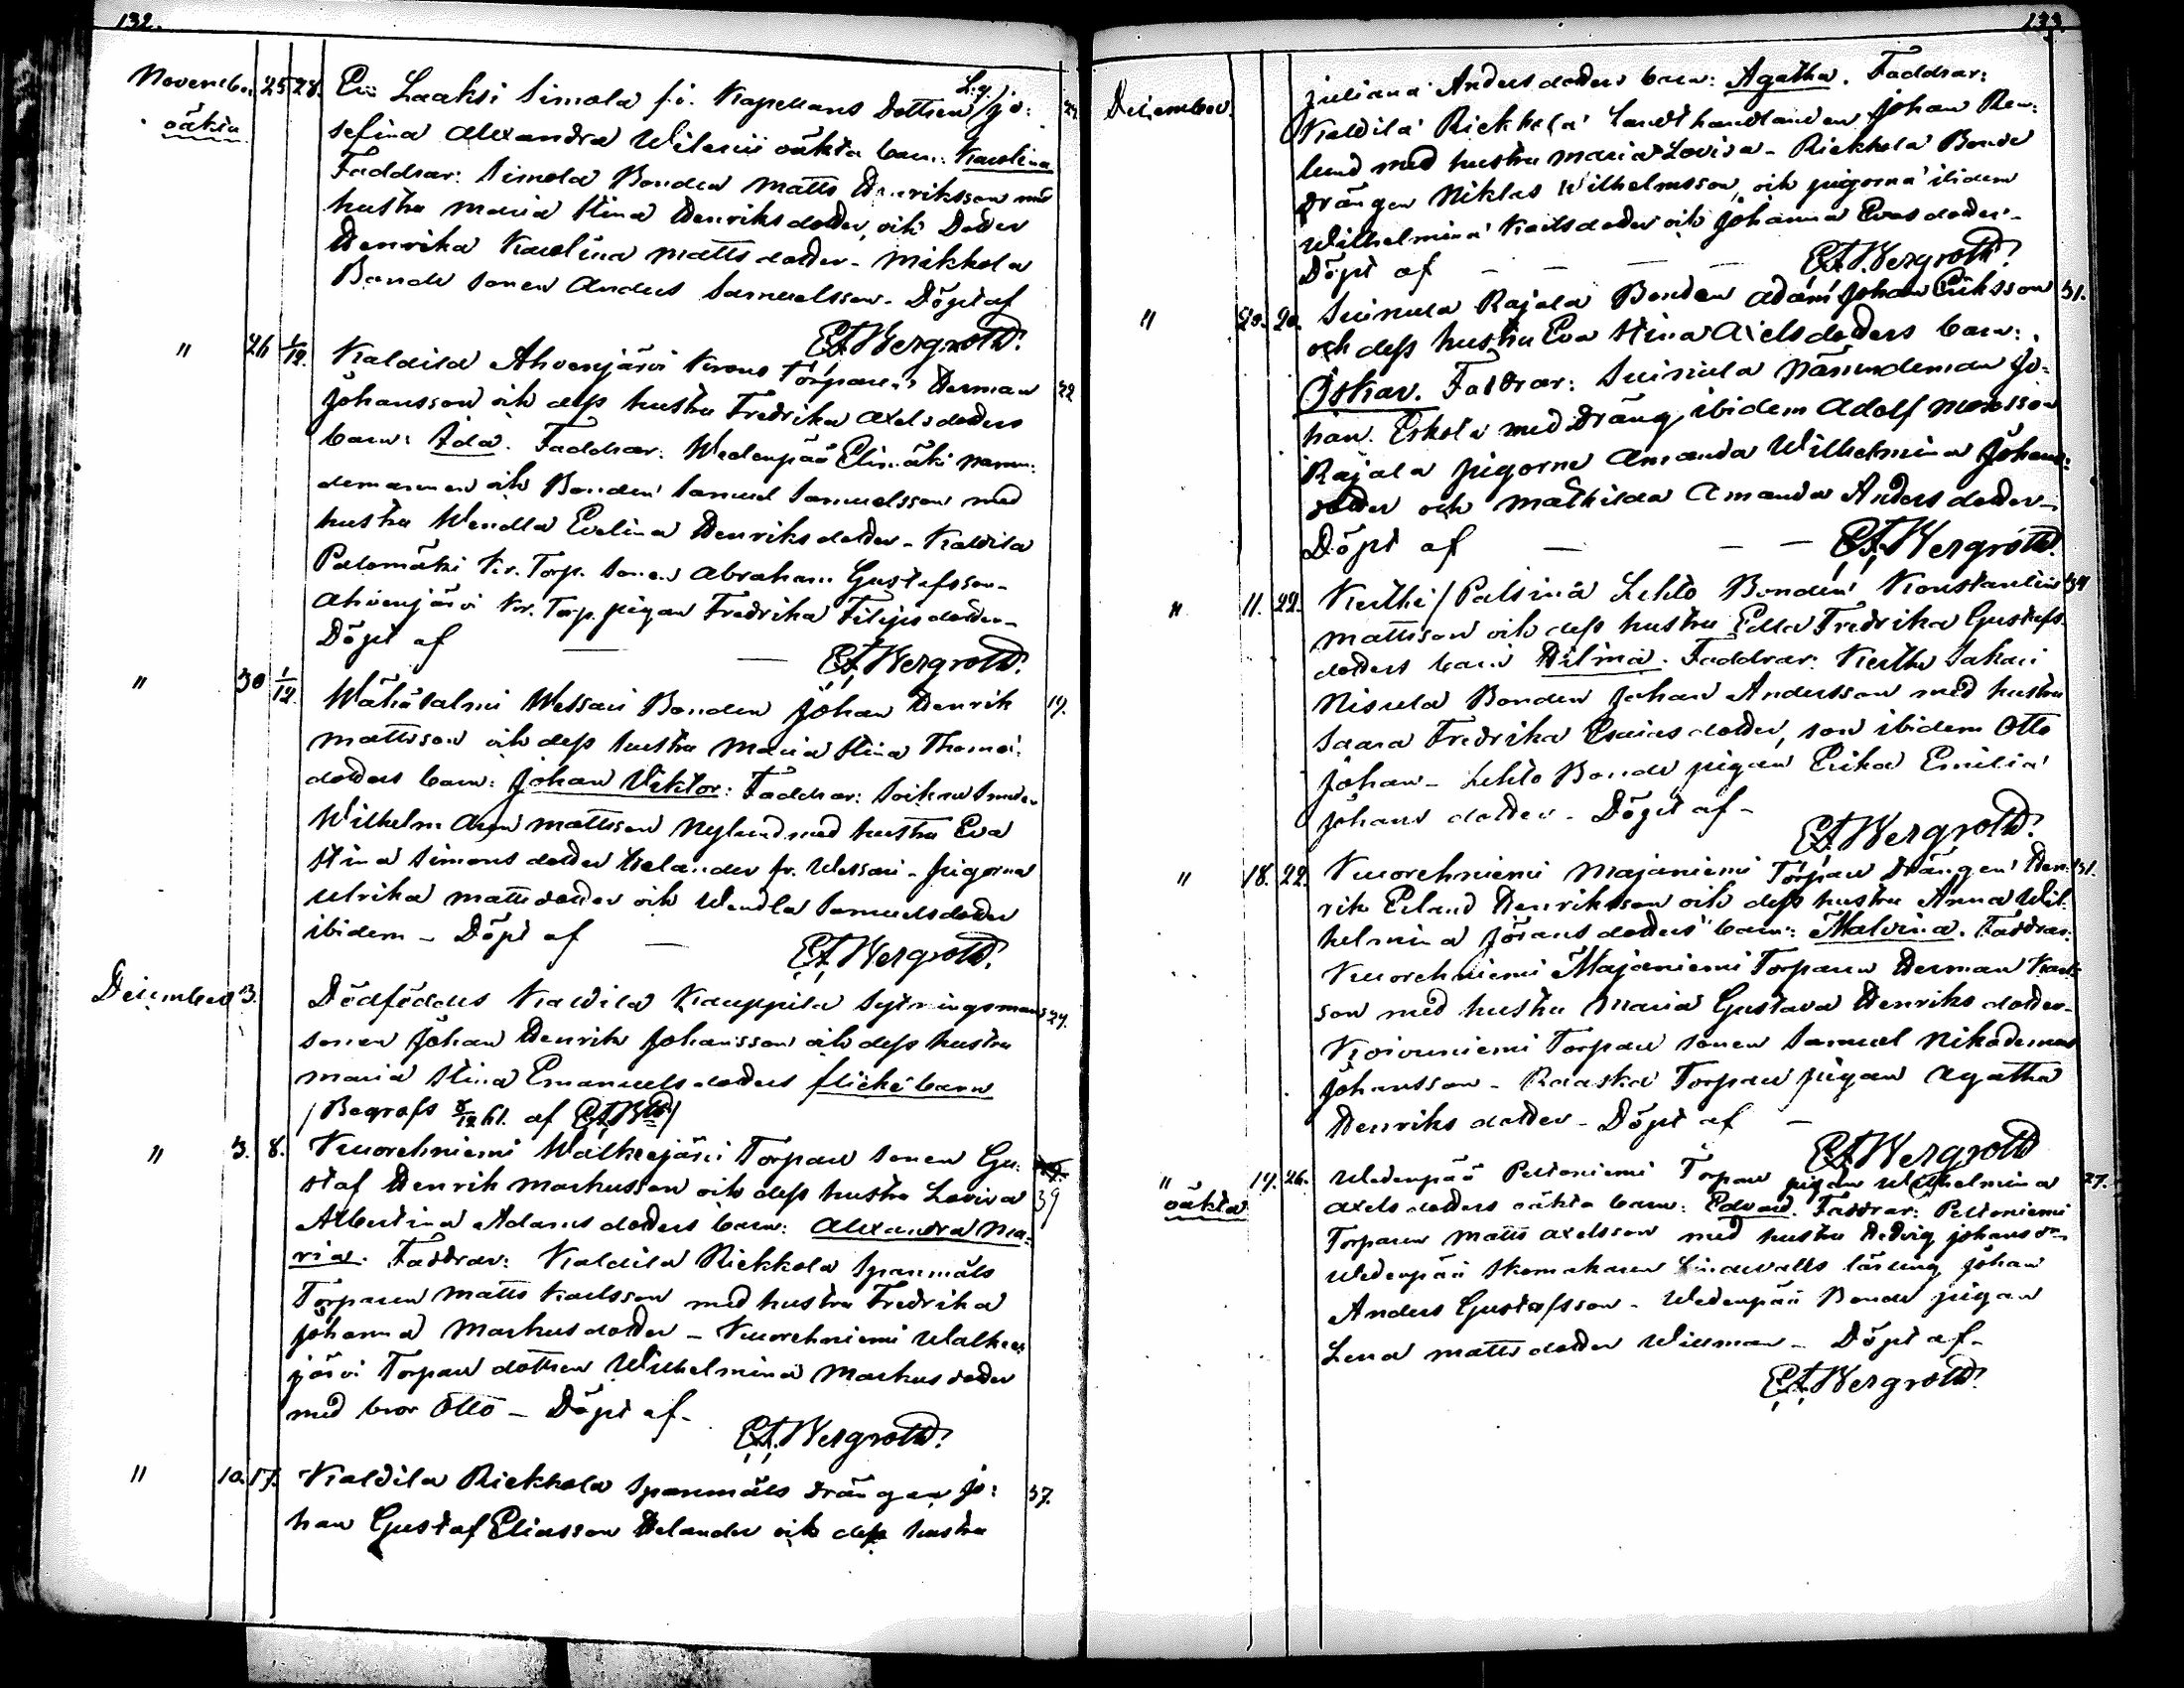 132.
November 25 28. En Laaksi Simola f.d. Kapellans Dottren /Jo:
oäkta
sefina Alexandra Wilenii oäkta barn: Karolina
Faddrar: Simola Bonden Matts Henriksson med
hustru Maria Stina Henriksdotter, och Dotter
Henrika Karolina Mattsdotter - Mikkola
Bonde sonen Anders Samuelsson. Döpt af
E.F. Bergroth.
" 26 1/12. Kaldila Ahvenjärvi Krono Torparen Herman 22
Johansson och dess hustru Fredrika Axelsdotters
barn: Ida. Faddrar: Wedenpää Elimäki Nämn:
demannen och Bonden Samuel Samuelsson med
hustru Wendla Evelina Henriksdotter - Kaldila
Palomäki Kr. Torp. sonen Abraham Gustafsson -
Ahvenjärvi Kr. Torp. pigan Fredrika Filipsdotter -
Döpt af
E.F. Bergroth.
" 30 1/12. Wähäsalmi Wessari Bonden Johan Henrik 19.
Mattsson och dess hustru Maria Stina Thomæ
dotters barn: Johan Viktor: Faddrar:
Wilhelm Mattsson Nylund med hustru Eva
Stina Simonsdotter Helander fr. Wessari - pigorna
Ulrika Mattsdotter och Wendla Samuelsdotter
ibidem - Döpt af
E.F. Bergroth.
December 3. Dödföddes Kaldila Kauppila Sytningsmans 24.
sonen Johan Henrik Johansson och dess hustru
Maria Stina Emanuelsdotters flicke barn
/Begrafs 8/12 61. af E.F. Bth/
" 3. 8. Kuorehniemi Walkeejärvi Torpare sonen Gu:
staf Henrik Markusson och dess hustru Lovisa 39
Albertina Adamsdotters barn: Alexandra Ma:
ria. Faddrar: Kaldila Riekkola Spanmåls
Torparen Matts Karlsson med hustru Fredrika
Johanna Markusdotter - Kuorehniemi Walkee
järvi Torpare dottren Wilhelmina Markusdotter
med bror Otto - Döpt af -
E.F. Bergroth.
" 10. 17. Kaldila Riekkola Spanmåls Drängen Jo: 37.
han Gustaf Eliasson Helander och dess hustru
133.
December. Juliana Andersdotters barn: Agatha. Faddrar:
Kaldila Riekkola Landthandlanden Johan Ren:
lund med hustru Maria Lovisa - Riekkola Bonde
Drängen Niklas Wilhelmsson, och pigorna ibidem
Wilhelmina Karlsdotter och Johanna Evasdotter -
Döpt af
E.F. Bergroth.
" 20. 20. Suinula Rajala Bonden Adam Johan Eriksson 31.
och dess hustru Eva Stina Axelsdotters barn:
Oskar. Faddrar: Suinula Nämndeman Jo:
han Eskola med Dräng ibidem Adolf
Rajala pigorna Amanda Wilhelmina Johans:
dotter och Mathilda Amanda Andersdotter -
Döpt af
E.F. Bergroth.
" 11. 22. Keuthi/Palsinä Lehto Bonden Konstantin 34
Mattsson och dess hustru Edla Fredrika Gustafs
dotters barn Hilma. Faddrar: Sakari
Nisula Bonden Johan Andersson med hustru
Saara Fredrika Esaiasdotter, son ibidem Otto
Johan - Lehto Bonde pigan Erika Emilia
Johans dotter - Döpt af -
E.F. Bergroth.
" 18. 22. Kuorehniemi Majaniemi Torpare Drängen Hen: 31.
rik Erland Henriksson och dess hustru Anna Wil:
helmina Jöransdotters barn: Malvina. Faddrar:
Kuorehniemi Majaniemi Torparen Herman Karls
son med hustru Maria Gustava Henriksdotter -
Koivuniemi Torpare sonen Samuel Nikodemus
Johansson - Raaska Torpare pigan Agatha
Henriksdotter - Döpt af
E.F. Bergroth
" 14. 26. Wedenpää Peltoniemi Torpare pigan Wilhelmina 27.
oäkta
Axelsdotters oäkta barn: Edvard. Faddrar: Peltoniemi
Torparen Matts Axelsson med hustru Hedvig Johansdr
Wedenpää Skomakaren Lindevalls lärling Johan
Anders Gustafsson - Wedenpää Bonde pigan
Lena Mattsdotter Willman - Döpt af -
E.F. Bergroth.